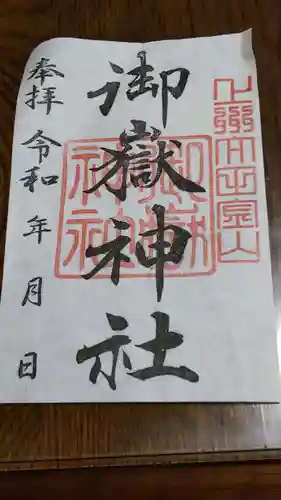 御嶽神社
奉拝 令和 年 月 日
御嶽神社